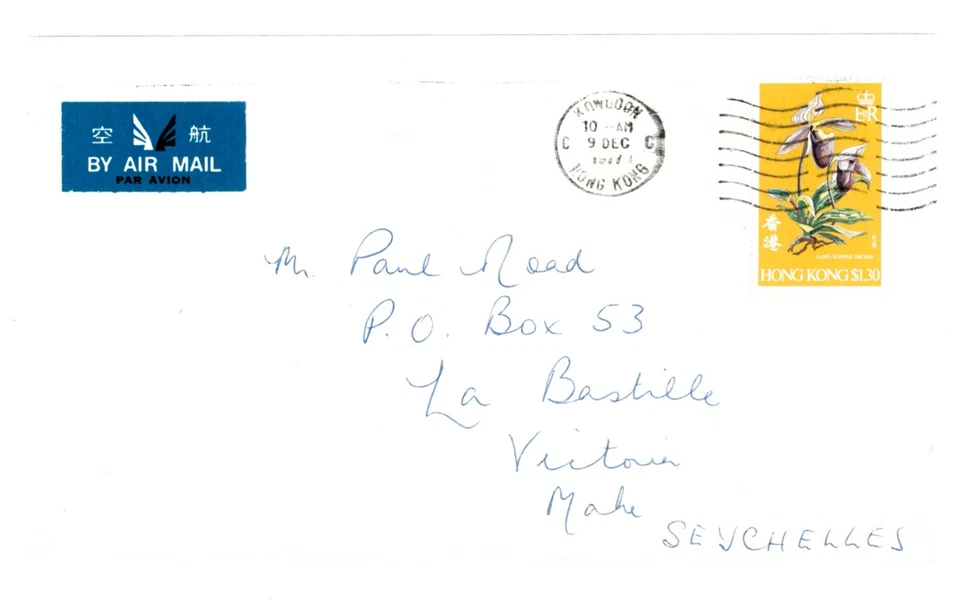 空 航
BY AIR MAIL
PAR AVION
KOWLOON
10 - AM
C 9 DEC C
HONG KONG
E R
香港
HONG KONG $1.30
Mr. Paul Read
P.O. Box 53
La Bastille
Victoria
Mahe
SEYCHELLES